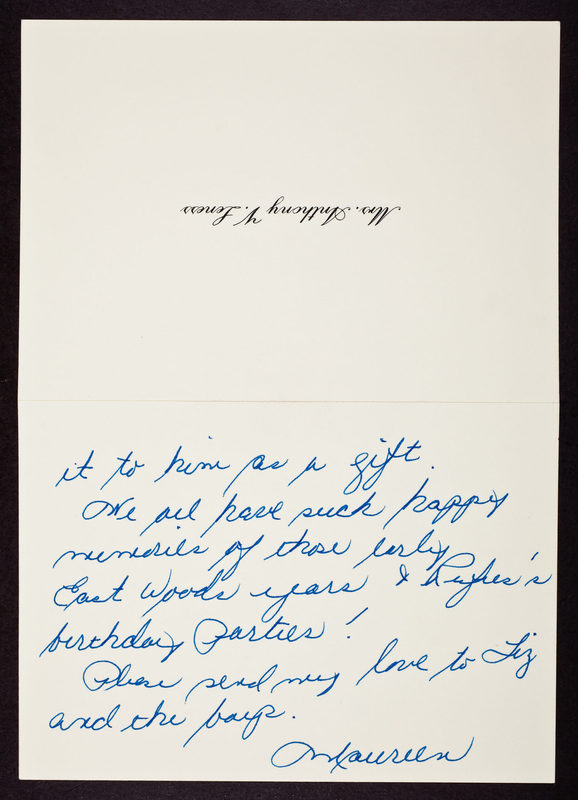 Mrs. Anthony V. Leness
it to him as a gift.
We all have such happy
memories of those early
East Woods years & Rufus's
birthday parties!
Please send my love to Liz
and the boys.
Maureen